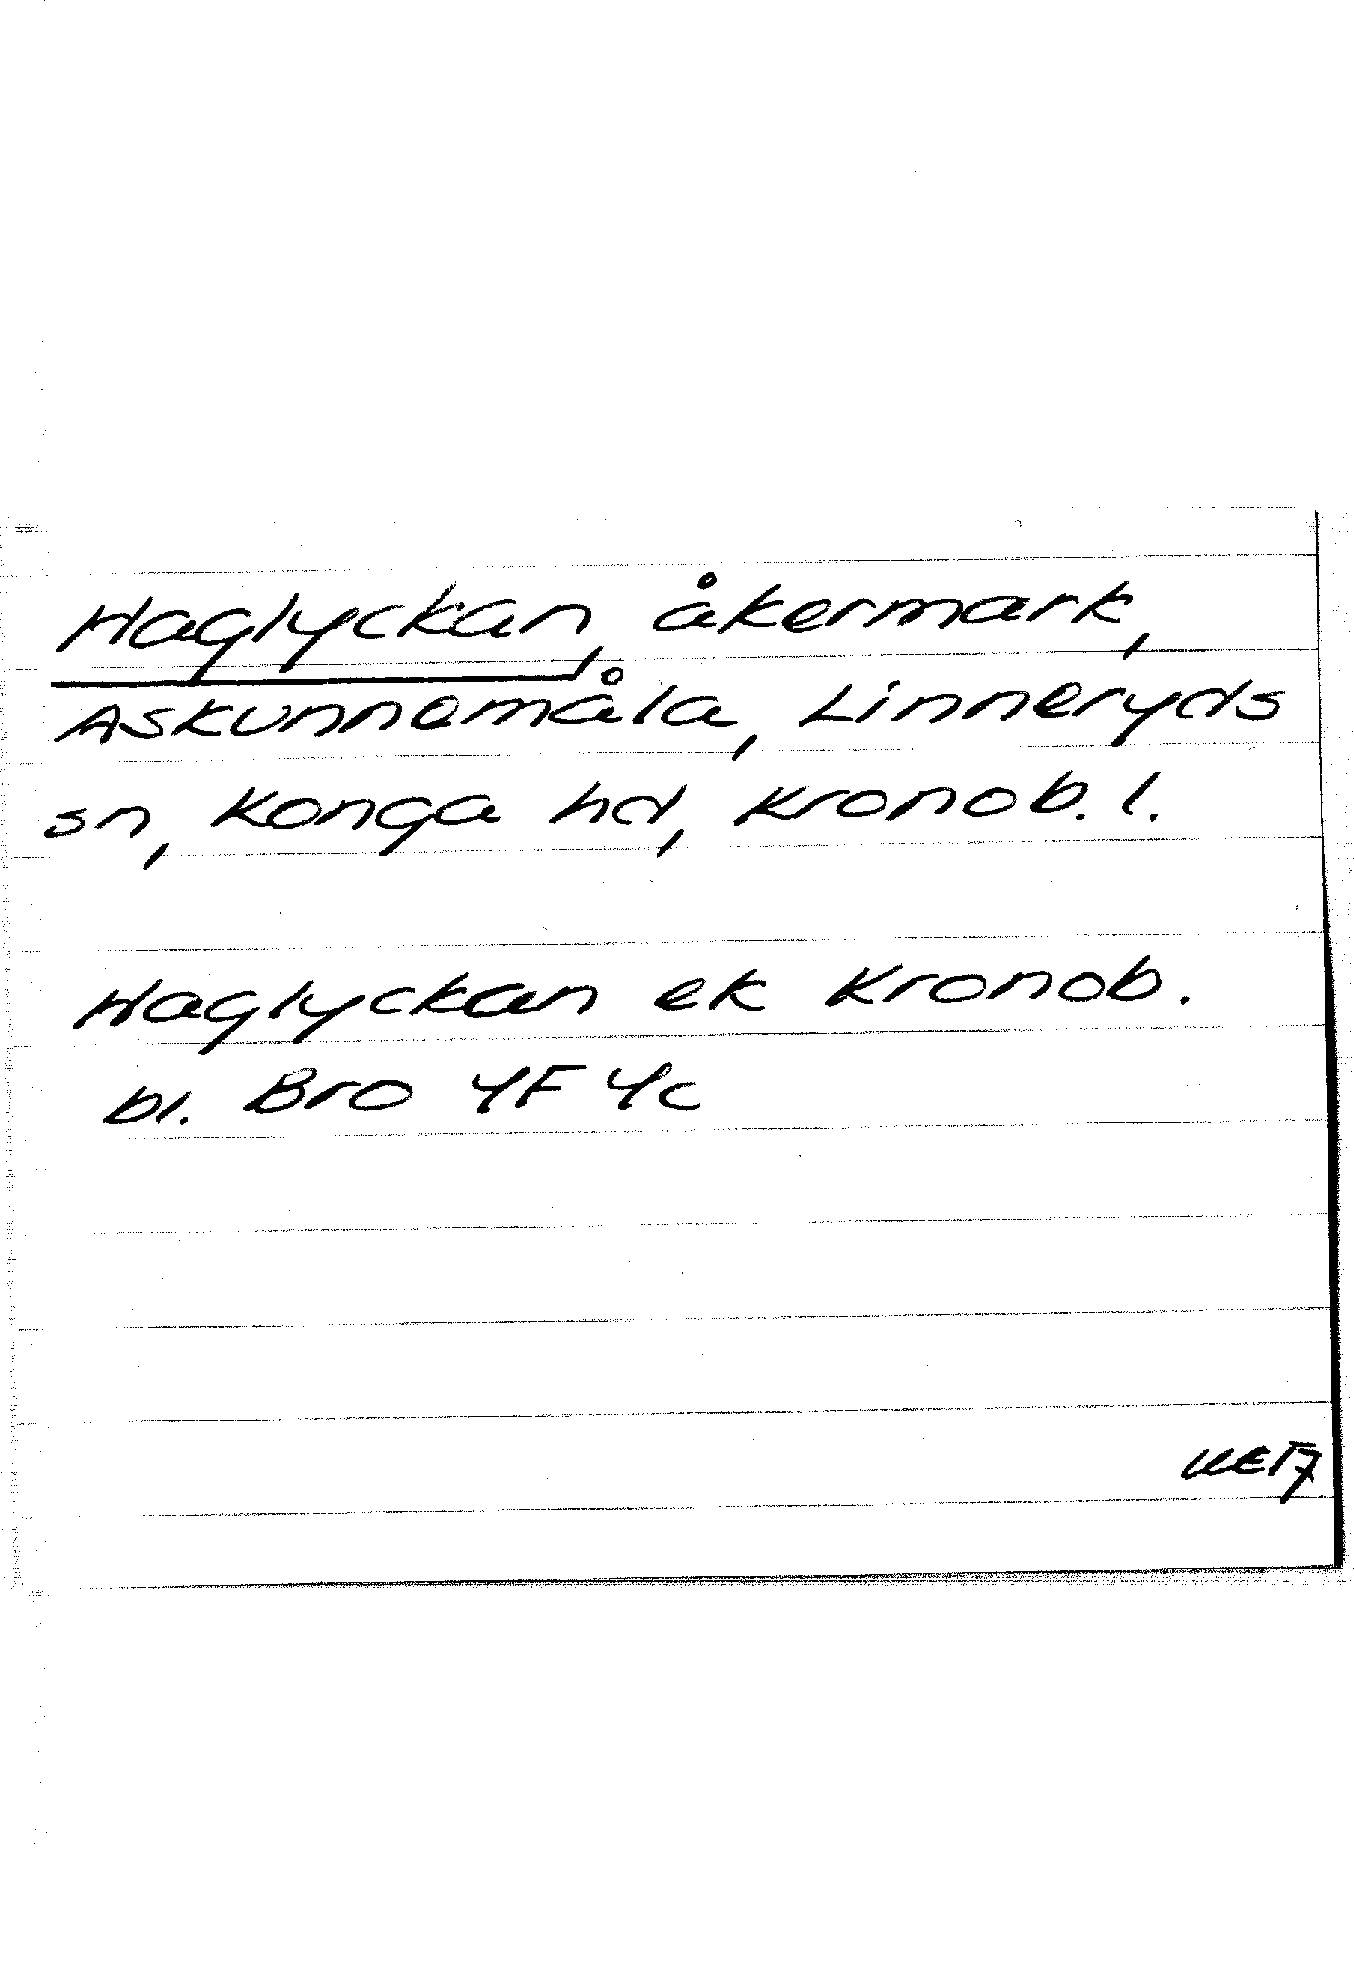 Haglyckan, åkermark,
Askunnemåla, Linneryds
sn, Konga hd, Kronob. l.
Haglyckan ek Kronob.
bl. Bro 4F 4c